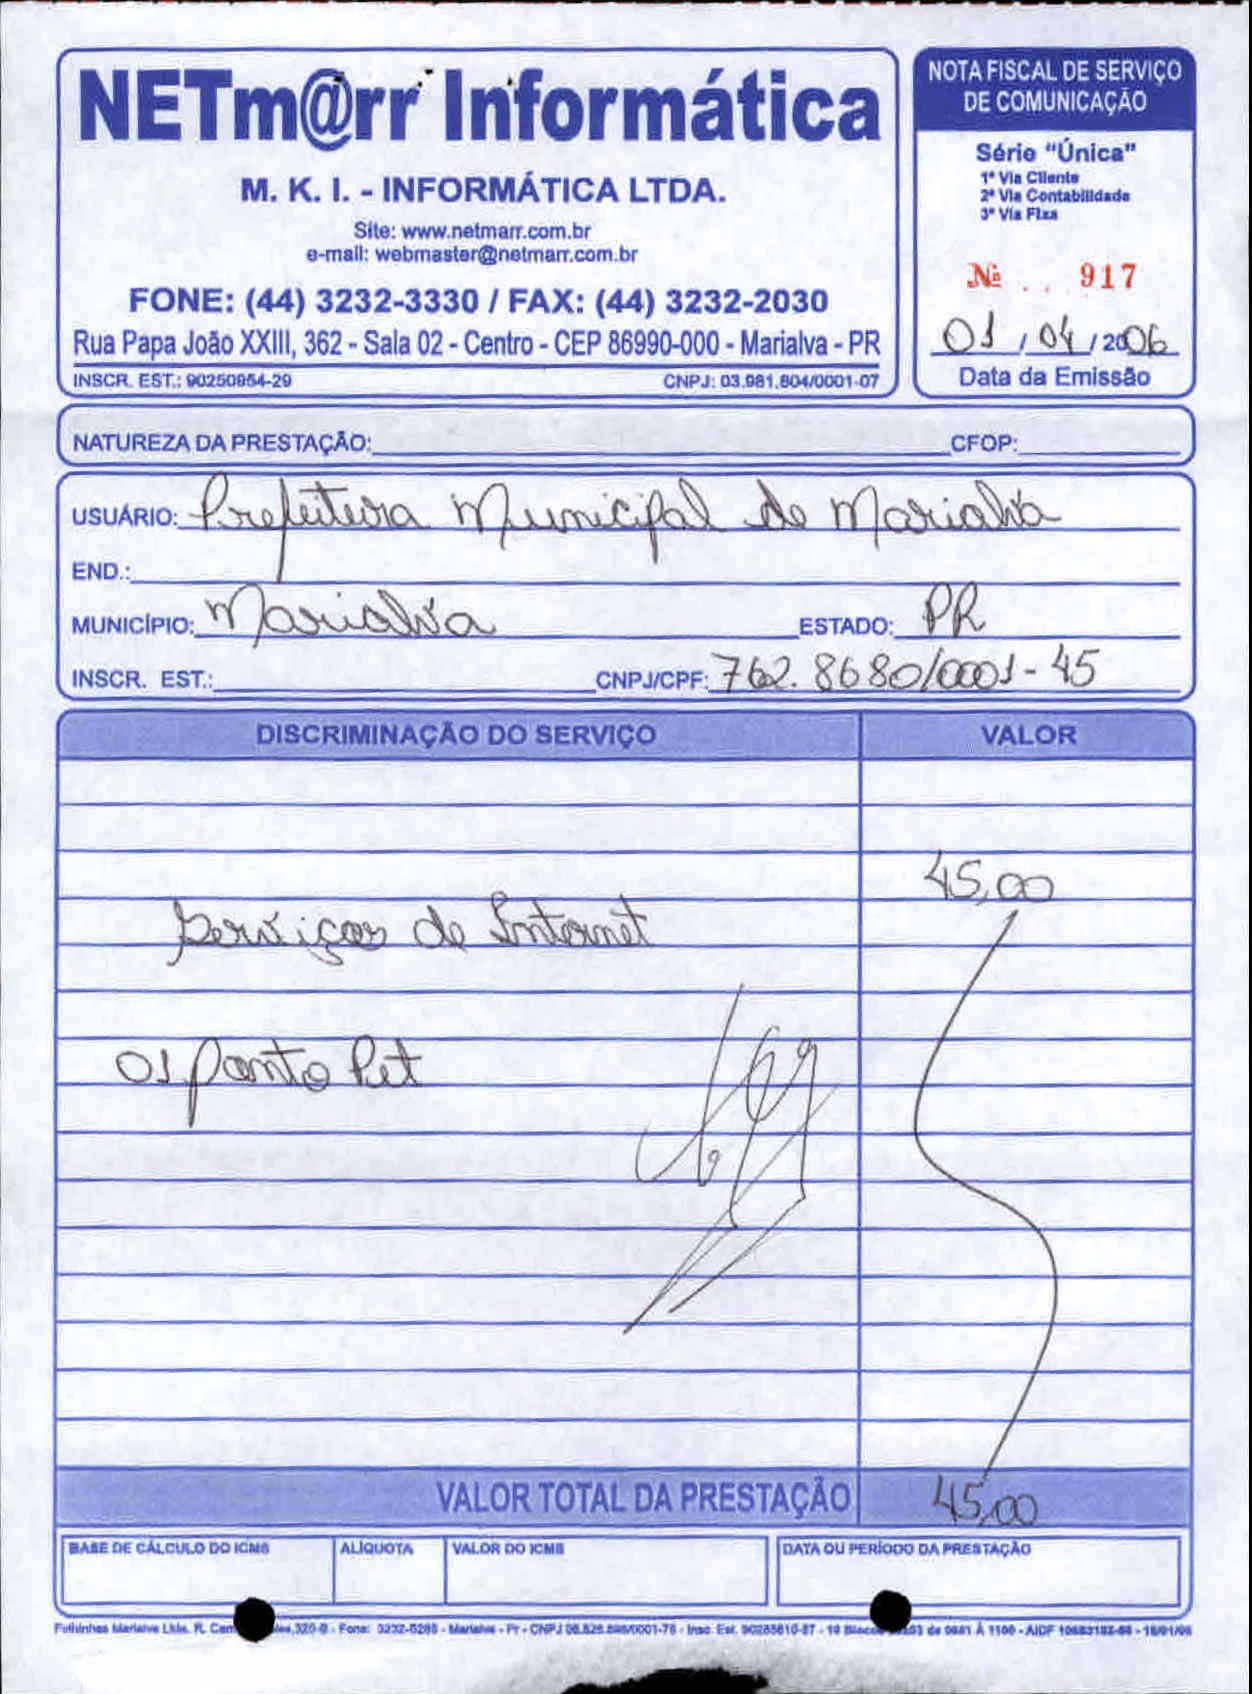 NETm@rr Informática
M. K. I. - INFORMÁTICA LTDA.
Site: www.netmarr.com.br
e-mail: webmaster@netmarr.com.br
FONE: (44) 3232-3330 / FAX: (44) 3232-2030
Rua Papa João XXIII, 362 - Sala 02 - Centro - CEP 86990-000 - Marialva - PR
INSCR. EST.: 90250954-29 CNPJ: 03.981.804/0001-07
NOTA FISCAL DE SERVIÇO
DE COMUNICAÇÃO
Série "Única"
1ª Via Cliente
2ª Via Contabilidade
3ª Via Fixa
Nº 917
01 / 04 / 2006
Data da Emissão
NATUREZA DA PRESTAÇÃO: CFOP:
USUÁRIO: Prefeitura Municipal de Marialva
END.:
MUNICÍPIO: Marialva ESTADO: PR
INSCR. EST.: CNPJ/CPF: 762.8680/0001-45
DISCRIMINAÇÃO DO SERVIÇO VALOR
45,00
Serviços de Internet
01 Ponto Pet
VALOR TOTAL DA PRESTAÇÃO 45,00
BASE DE CÁLCULO DO ICMS ALÍQUOTA VALOR DO ICMS DATA OU PERÍODO DA PRESTAÇÃO
Marialva Ltda. R. 320-B - Fone: 3232-5285 - Marialva - Pr - Insc. Est. - 10 Blocos de 0651 À 1100 - AIDF - 18/01/06